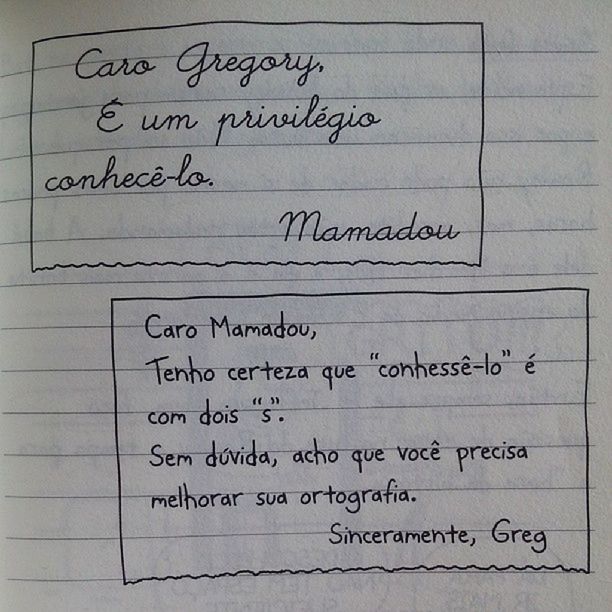 Caro Gregory,
É um privilégio
conhecê-lo.
Mamadou
Caro Mamadou,
Tenho certeza que “conhessê-lo” é
com dois “s”.
Sem dúvida, acho que você precisa
melhorar sua ortografia.
Sinceramente, Greg